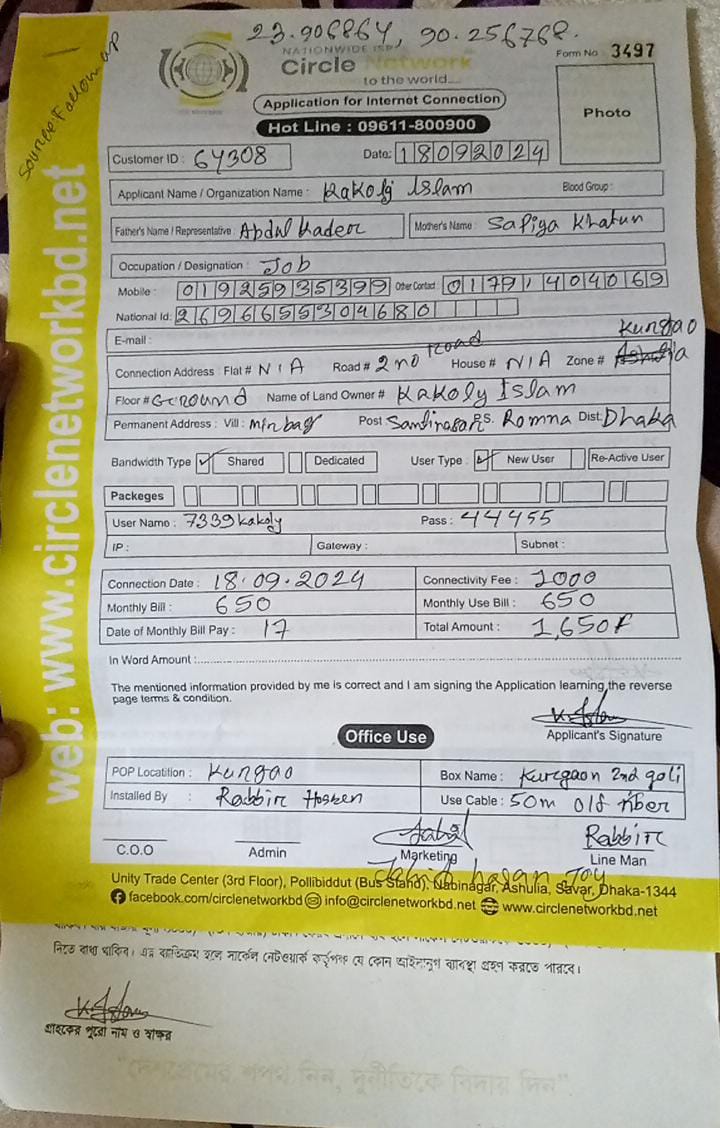 23.906864, 90.256768.
Source: Follow up
NATIONWIDE ISP
Circle Network
to the world....
Form No 3497
Application for Internet Connection
Hot Line : 09611-800900
Photo
Customer ID : 64308 Date: 18092024
Applicant Name / Organization Name : Kakoly Islam Blood Group :
Father's Name / Representative : Abdul Kader Mother's Name : Safiya Khatun
Occupation / Designation : Job
Mobile : 01925935399 Other Contact : 0179,404069
National Id: 2696655304680
E-mail :
Kungao
Connection Address : Flat # N/A Road # 2no Road House # N/A Zone # Ashulia
Floor # Ground Name of Land Owner # Kakoly Islam
Permanent Address : Vill : Mirbag Post : P.S. Romna Dist: Dhaka
Bandwidth Type ✓ Shared Dedicated User Type : ✓ New User Re-Active User
Packeges
User Name : 7339kakoly Pass : 44455
IP : Gateway : Subnet :
Connection Date : 18.09.2024 Connectivity Fee : 1000
Monthly Bill : 650 Monthly Use Bill : 650
Date of Monthly Bill Pay : 17 Total Amount : 1,650৳
In Word Amount :
The mentioned information provided by me is correct and I am signing the Application learning the reverse
page terms & condition.
K. Islam
Applicant's Signature
Office Use
POP Locatition : Kungao Box Name : Kurgaon 2nd goli
Installed By : Rabbir Hossen Use Cable : 50m old fiber
Rabbir
C.O.O Admin Marketing Line Man
Jahid hasan Joy
Unity Trade Center (3rd Floor), Pollibiddut (Bus Stand), Nabinagar, Ashulia, Savar, Dhaka-1344
facebook.com/circlenetworkbd info@circlenetworkbd.net www.circlenetworkbd.net
web: www.circlenetworkbd.net
নিতে বাধ্য থাকিব। এর ব্যতিক্রম হলে সার্কেল নেটওয়ার্ক কর্তৃপক্ষ যে কোন আইনানুগ ব্যবস্থা গ্রহণ করতে পারবে।
K. Islam
গ্রাহকের পুরো নাম ও স্বাক্ষর
"দেশপ্রেমের শপথ নিন, দুর্নীতিকে বিদায় দিন"